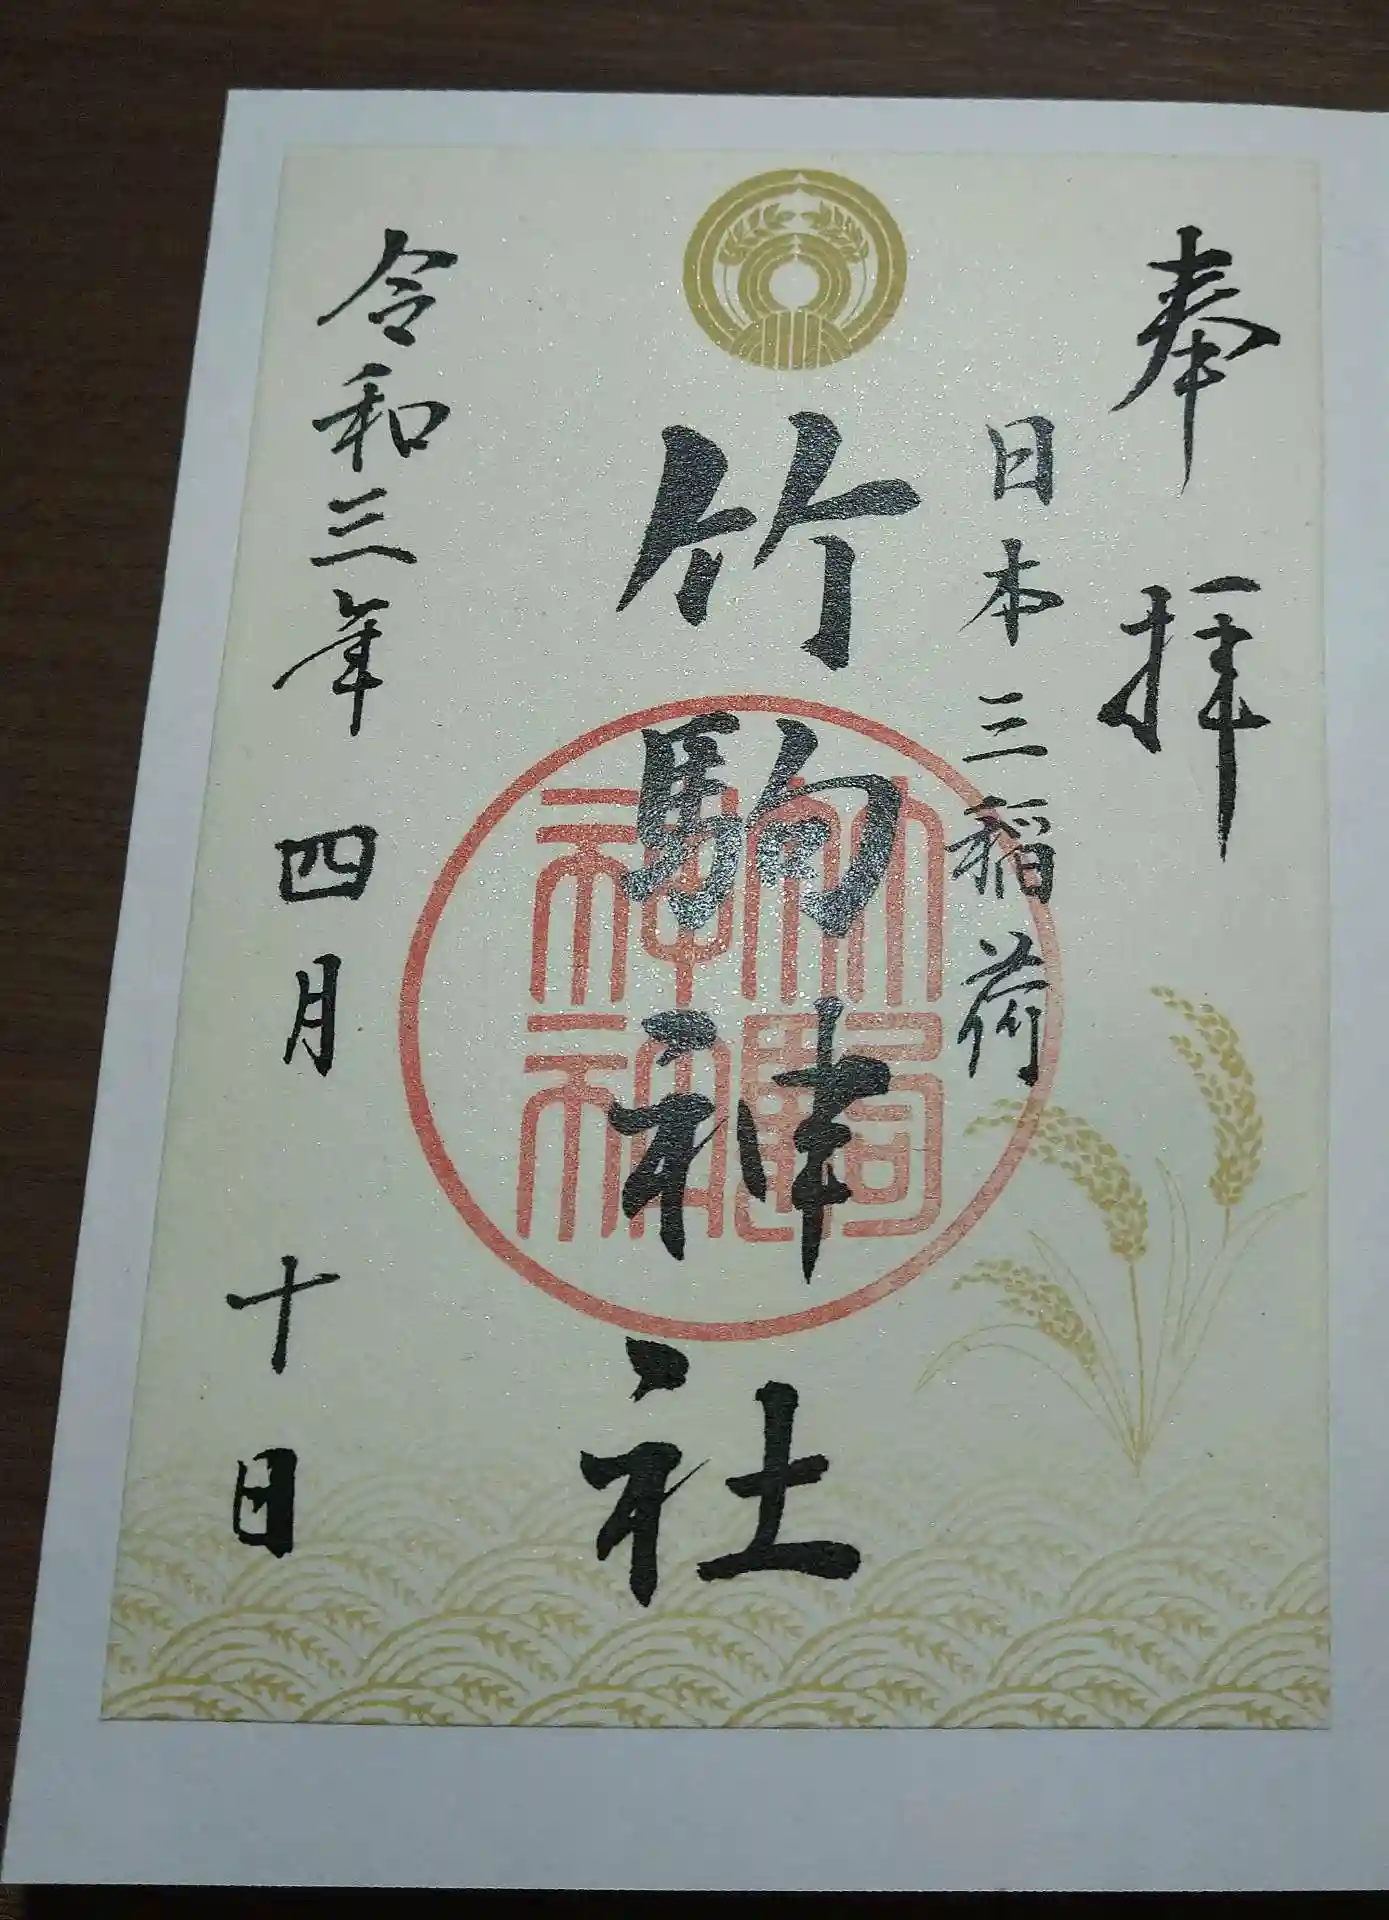 奉拝
日本三稲荷
竹駒神社
竹駒
神社
令和三年四月十日